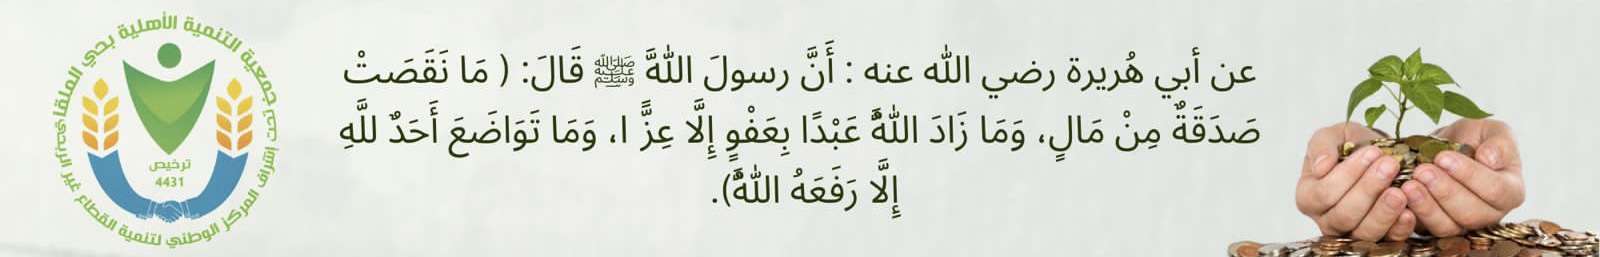 عن أبي هُريرة رضي الله عنه : أَنَّ رسولَ اللهَّ ﷺ قَالَ: ( مَا نَقَصَتْ
صَدَقَةٌ مِنْ مَالٍ، وَمَا زَادَ اللهُّ عَبْدًا بِعَفْوٍ إِلَّا عِزًّ ا، وَمَا تَوَاضَعَ أَحَدٌ للَّهِ
إِلَّا رَفَعَهُ اللهُّ).
جمعية التنمية الأهلية بحي الملقا
ترخيص
4431
تحت إشراف المركز الوطني لتنمية القطاع غير الربحي